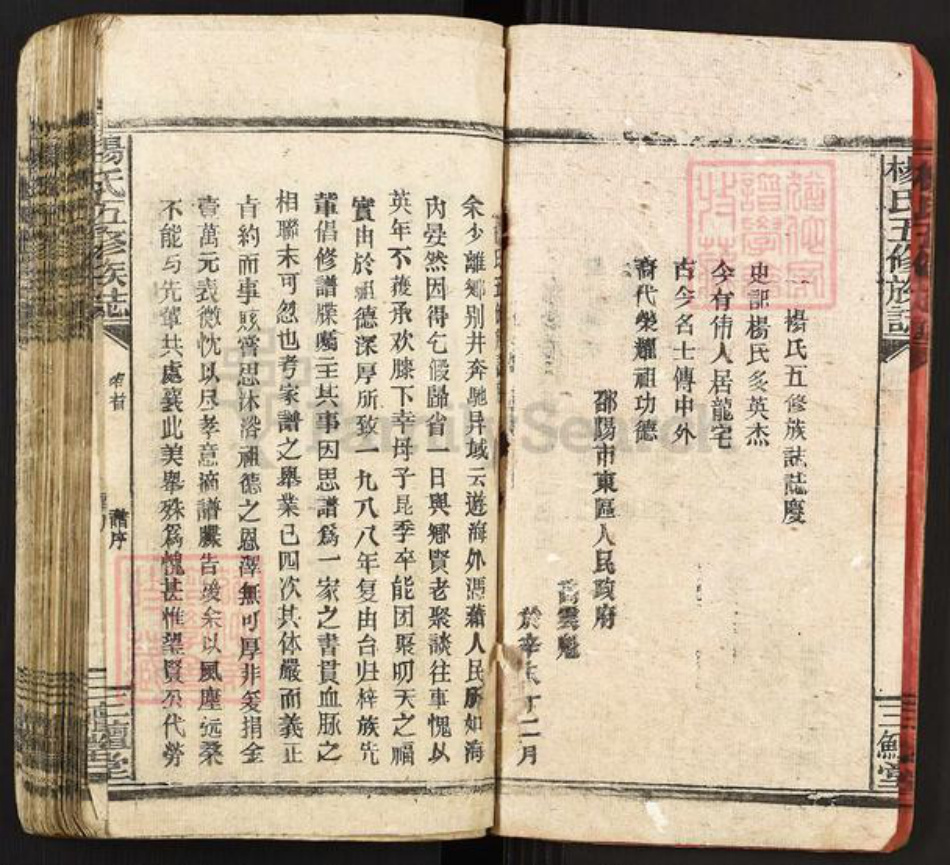 楊氏五修族誌
三鱣堂
楊氏五修族誌誌慶
史部楊氏多英杰
今有偉人居龍宅
古今名士傳中外
裔代榮耀祖功德
邵陽市東區人民政府
雲魁
於辛未十二月
余少離鄉別井奔馳异域云遊海外漂蕩人民脉如海
内晏然因得乞假歸省一日與鄉賢老聚談往事愧以
英年不獲承欢膝下幸母子昆季卒能团聚叨天之福
實由於祖德深厚所致一九八八年复由台归梓族先
輩倡修譜牒囑主其事因思譜爲一家之書貫血脉之
相聯未可忽也考家譜之舉業已四次其体嚴而義正
旨約而事賅嘗思沐浴祖德之恩澤無可厚非爰捐金
壹萬元表微忱以尽孝意滴譜牒告竣余以風塵远桑
不能与先輩共處襄此美舉殊爲愧甚惟望賢丕代勞
楊氏五修族誌
卷首
譜序
三鱣堂
FamilySearch